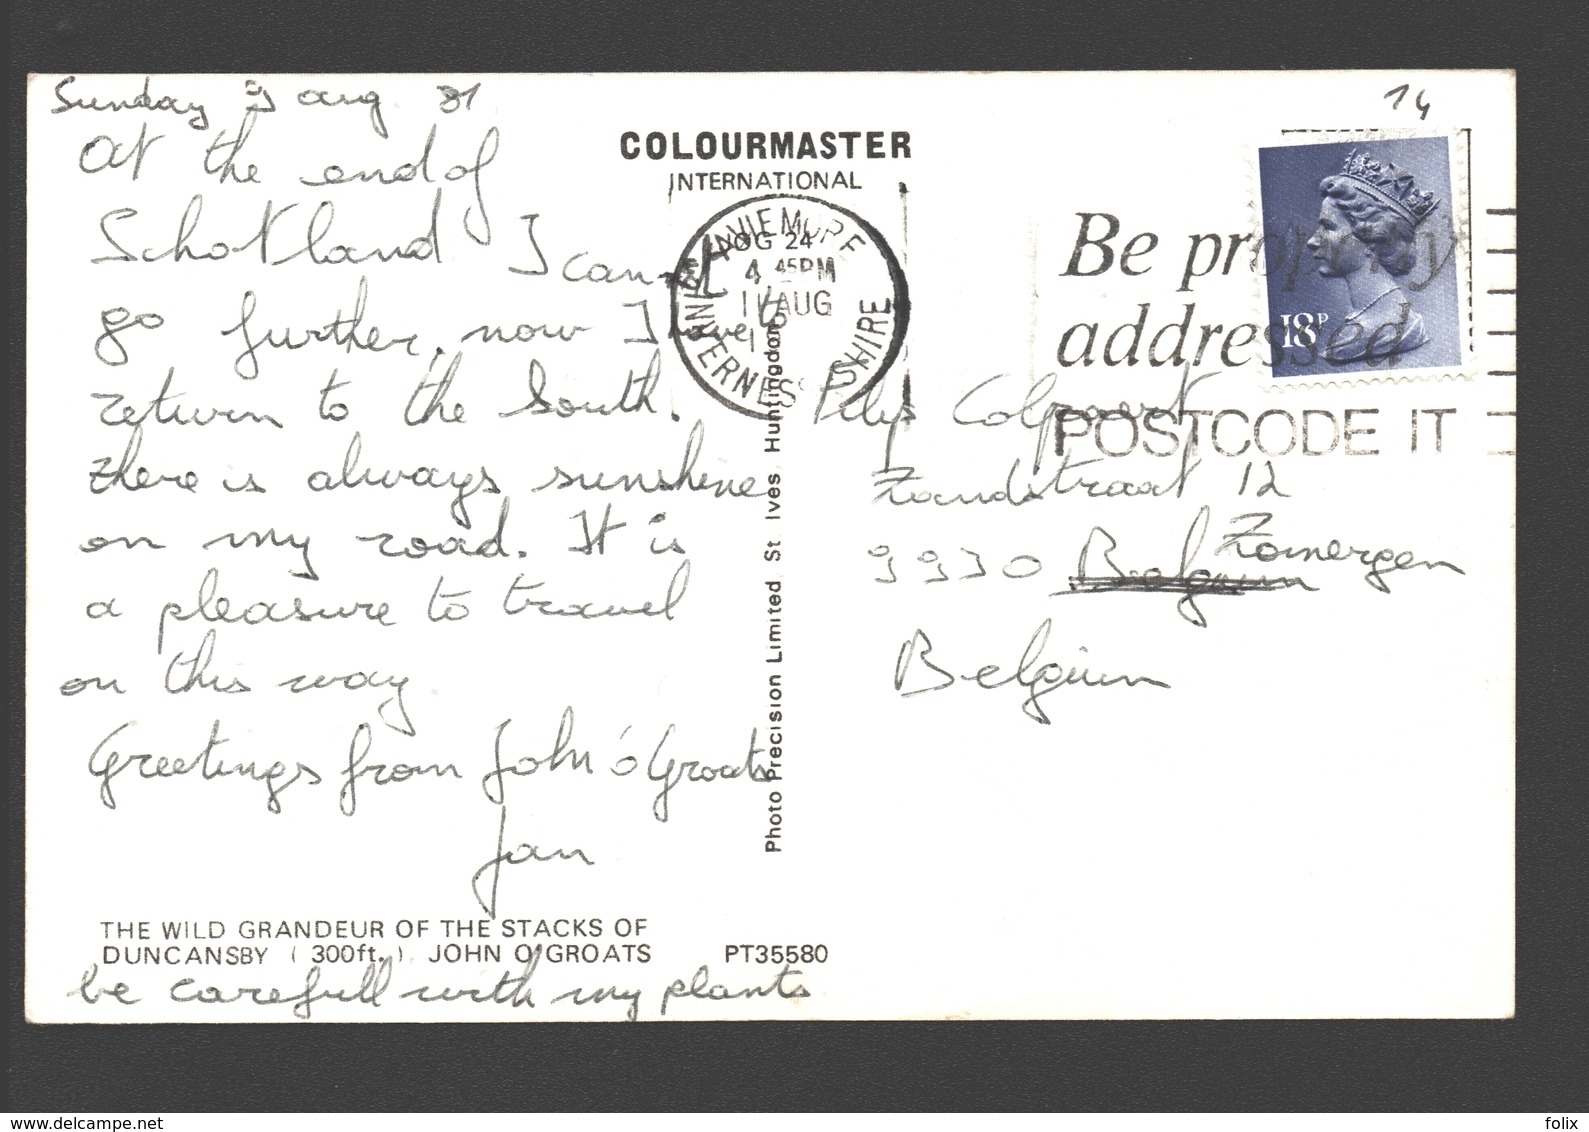 Sunday 9 aug 81
At the end of
Schotland I can
go further, now I have to
return to the South.
there is always sunshine
on my road. It is
a pleasure to travel
on this way
Greetings from John ó Groats
Jan
THE WILD GRANDEUR OF THE STACKS OF
DUNCANSBY ( 300ft. ) JOHN O'GROATS PT35580
be carefull with my plants
COLOURMASTER
INTERNATIONAL
Photo Precision Limited St Ives Huntingdon
4 45PM
11 AUG
14
18P
Be properly
addressed
POSTCODE IT
Colpaert
Zandstraat 12
9930 Belgium Zomergem
Belgium
folix